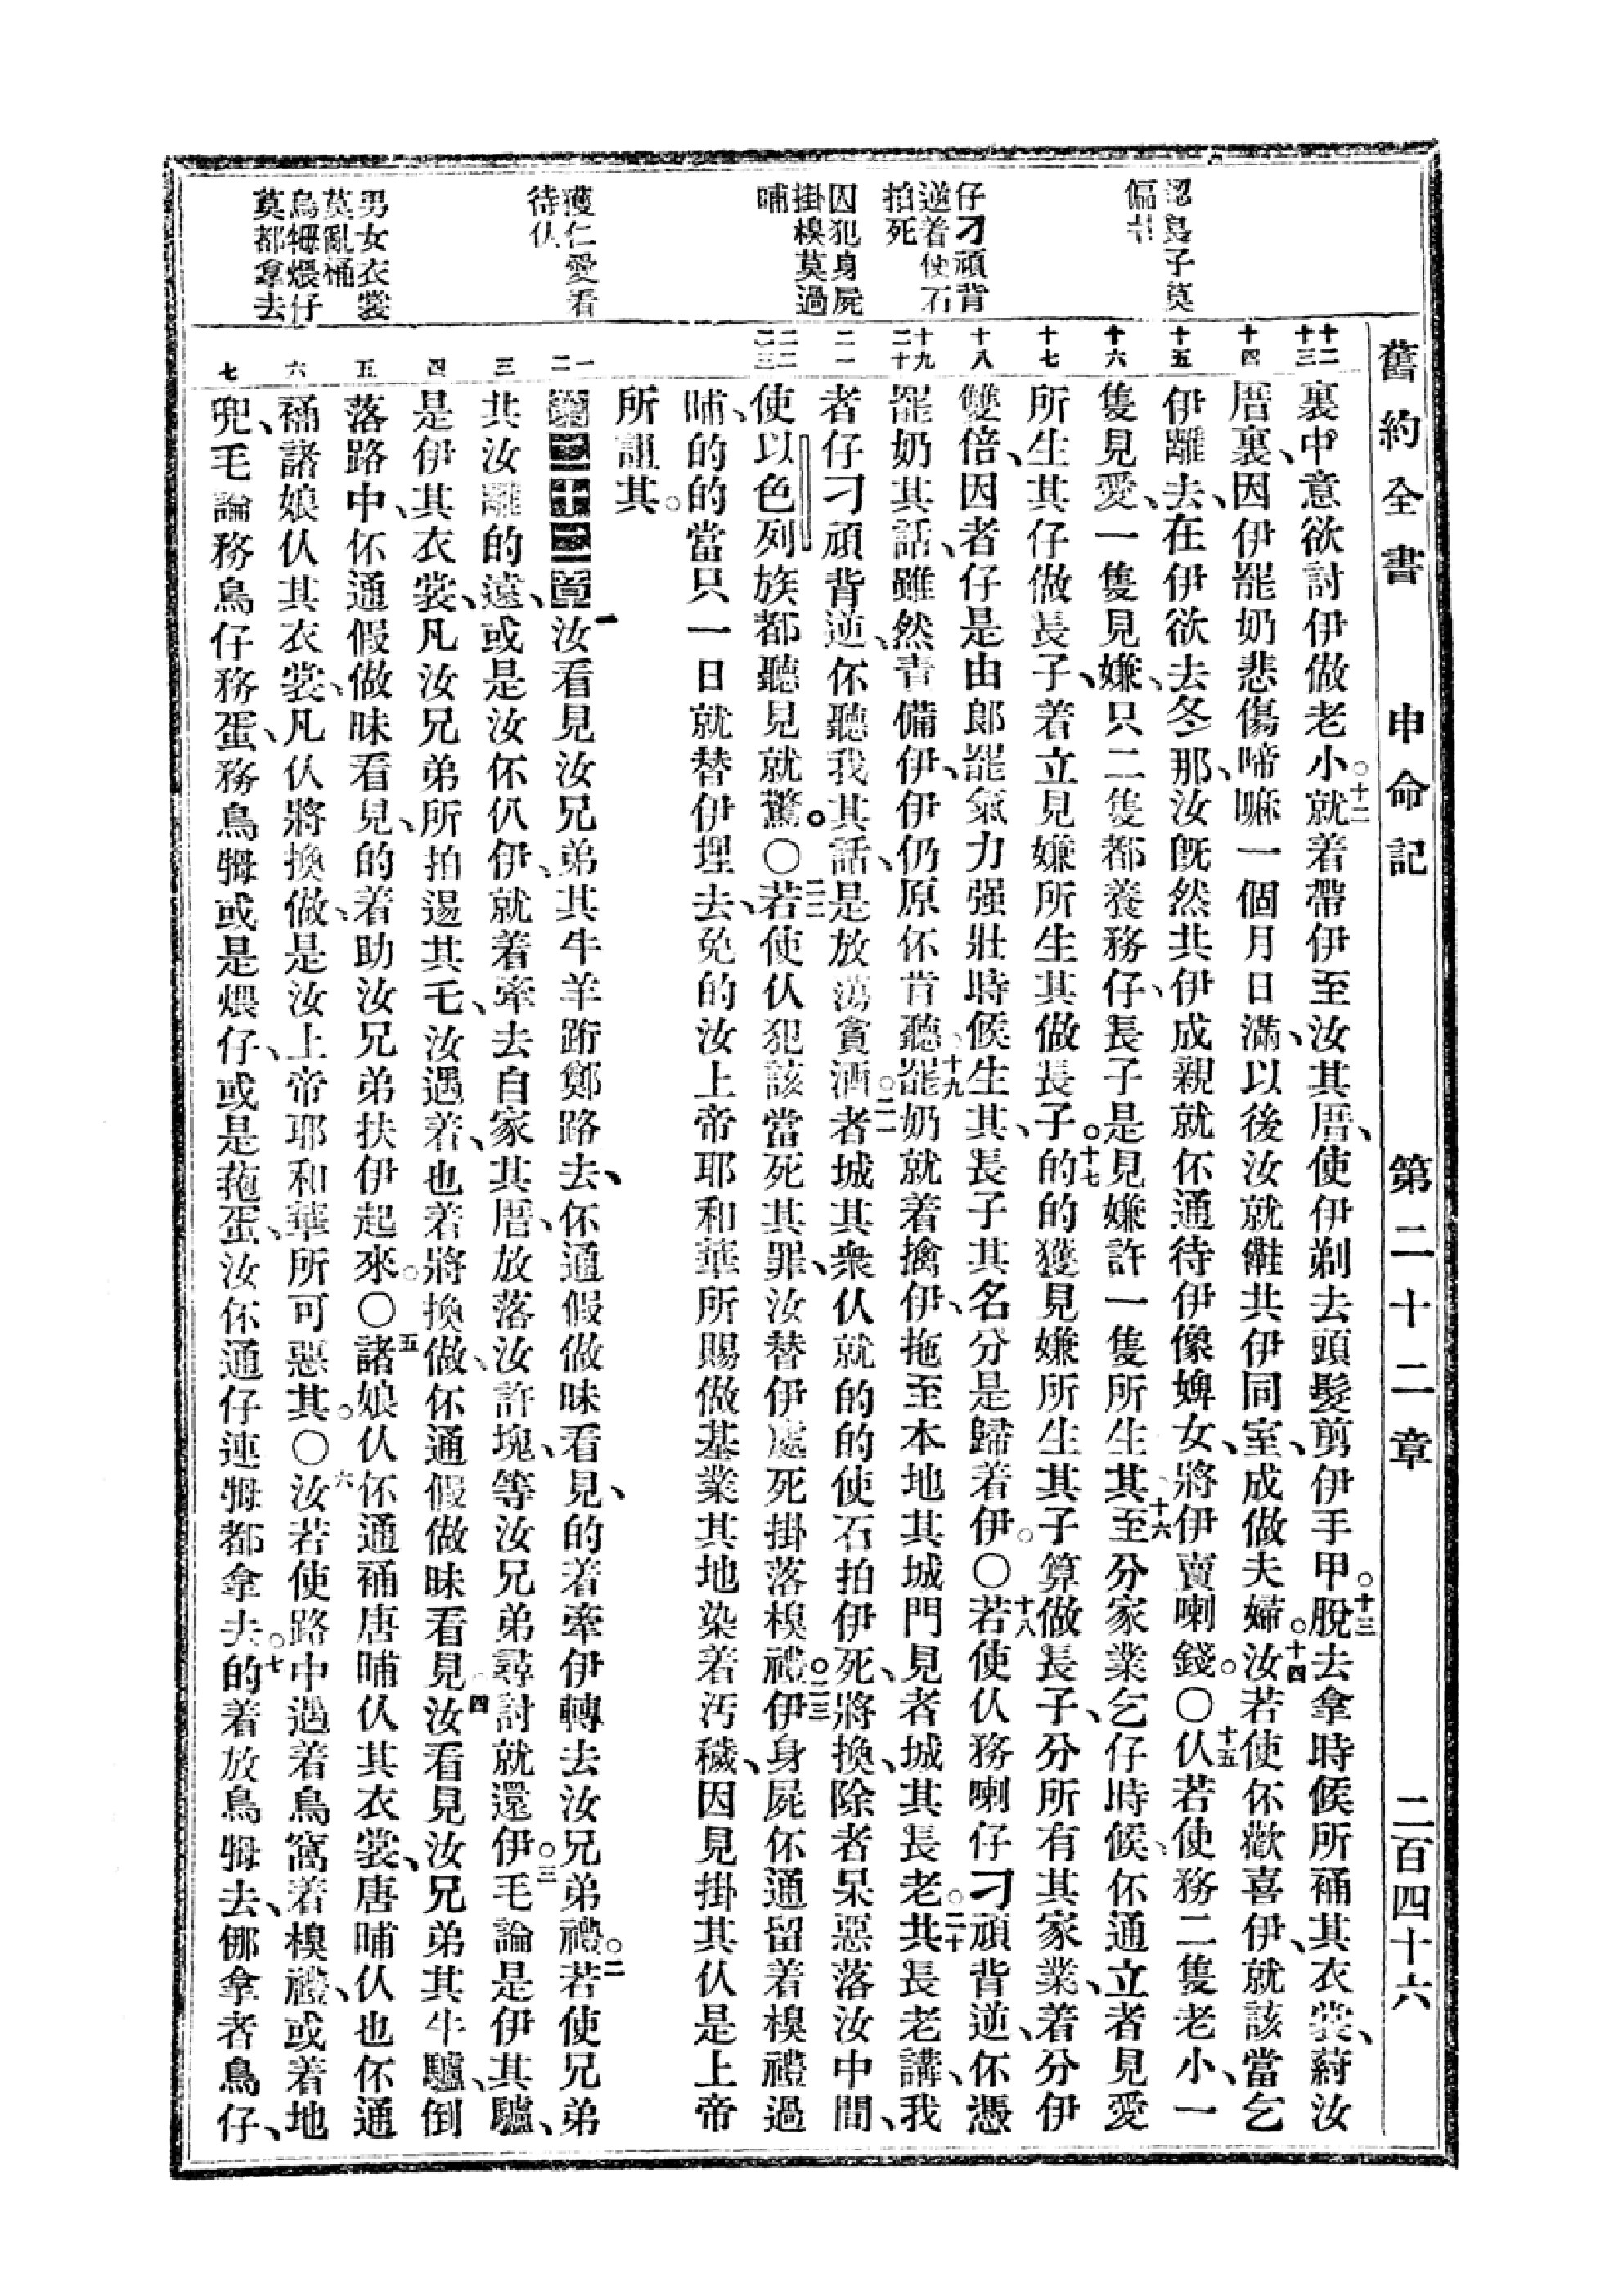 舊約全書　申命記　第二十二章　二百四十六
認長子莫
偏心
仔刁頑背
逆着使石
拍死
囚犯身屍
掛槺莫過
晡
獲仁愛看
待仏
男女衣裳
莫亂𧙕
鳥𤚥煨仔
莫都拿去
十二
十三
十四
十五
十六
十七
十八
十九
二十
二一
二二
二三
一
二
三
四
五
六
七
裏、中意欲討伊做老小。十二就着帶伊至汝其厝、使伊剃去頭髮、剪伊手甲。十三脫去拿時候所𧙕其衣裳、蒔汝
厝裏、因伊罷奶悲傷啼嘛一個月日滿、以後汝就䧳共伊同室、成做夫婦。十四汝若使伓歡喜伊、就該當乞
伊離去、在伊欲去冬那、汝旣然共伊成親、就伓通待伊像婢女、將伊賣喇錢。〇十五仏若使務二隻老小、一
隻見愛、一隻見嫌、只二隻都養務仔、長子是見嫌許一隻所生其、十六至分家業乞仔時候、伓通立者見愛
所生其仔做長子、着立見嫌所生其做長子。十七的的獲見嫌所生其子算做長子、分所有其家業、着分伊
雙倍、因者仔是由郞罷氣力强壯時候生其、長子其名分是歸着伊。〇十八若使仏務喇仔刁頑背逆、伓憑
罷奶其話、雖然責備伊、伊仍原伓肯聽、十九罷奶就着擒伊、拖至本地其城門、見者城其長老。二十共長老講、我
者仔刁頑背逆、伓聽我其話、是放蕩貪酒。二一者城其衆仏就的的使石拍伊死、將換除者呆惡落汝中間、
使以色列族都聽見就驚。〇二二若使仏犯該當死其罪、汝替伊處死、掛落槺禮。二三伊身屍伓通留着槺禮過
晡、的的當只一日就替伊埋去、免的汝上帝耶和華所賜做基業其地染着汚穢、因見掛其仏是上帝
所詛其。
第二十二章　一汝看見汝兄弟其牛羊跕鄭路去、伓通假做昧看見、的着牽伊轉去汝兄弟禮。二若使兄弟
共汝離的遠、或是汝伓仈伊、就着牽去自家其厝、放落汝許塊、等汝兄弟尋討就還伊。三毛論是伊其驢、
是伊其衣裳、凡汝兄弟所拍逿其乇、汝遇着、也着將換做、伓通假做昧看見。四汝看見汝兄弟其牛驢倒
落路中、伓通假做昧看見、的着助汝兄弟扶伊起來。〇五諸娘仏伓通𧙕唐晡仏其衣裳、唐晡仏也伓通
𧙕諸娘仏其衣裳、凡仏將換做、是汝上帝耶和華所可惡其。〇六汝若使路中遇着鳥窩着槺禮、或着地
兜、毛論務鳥仔務蛋、務鳥𤚥或是煨仔、或是菢蛋、汝伓通仔連𤚥都拿去。七的着放鳥𤚥去、㑚拿者鳥仔、